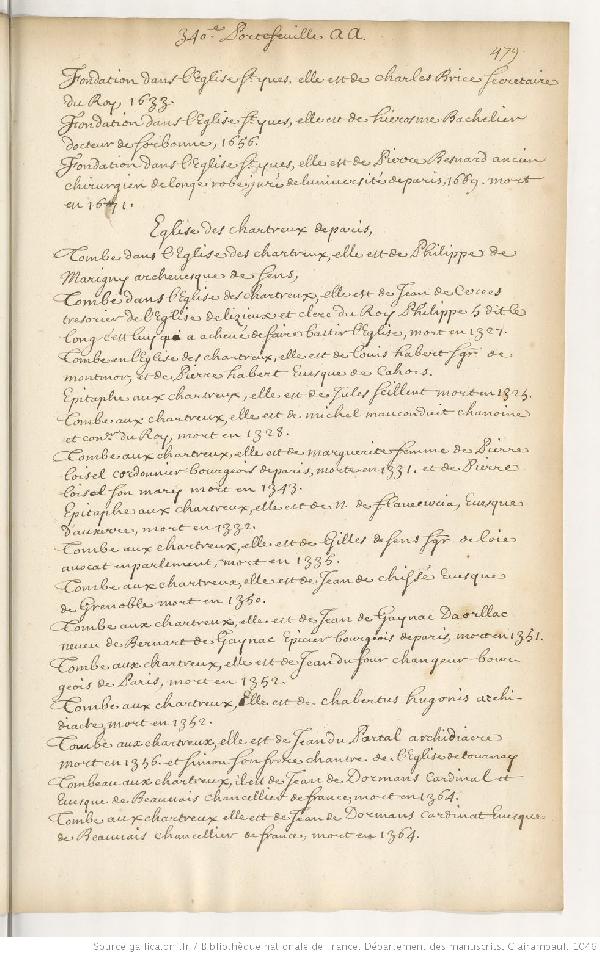 340.e Portefeuille AA.
479.
Fondation dans l'Eglise St yves, elle est de Charles Brice secretaire
du Roy 1633.
Fondation dans l'Eglise St yves, elle est de hierosme Bachelier
docteur de sorbonne, 1656.
Fondation dans l'Eglise St yves, elle est de Pierre Besnard ancien
chirurgien de longe robe, juré de luniversité de paris, 1669. mort
en 1671.
Eglise des chartreux de paris,
Tombe dans l'Eglise des chartreux, elle est de Philippe de
Marigny archevesque de sens,
Tombe dans l'Eglise des chartreux, elle est de Jean de Cerees
tresorier de l'Eglise de lizieux et clerc du Roy Philippe 5 dit le
long c'est luy qui a achevé de faire bastir l'Eglise, mort en 1327.
Tombe en l'Eglise des chartreux, elle est de Louis habert sgr de
montmor, et de Pierre habert Evesque de Cahors.
Epitaphe aux chartreux, elle est de Jules mort en 1325.
Tombe aux chartreux, elle est de michel mauconduit chanoine
et conr du Roy, mort en 1328.
Tombe aux chartreux, elle est de marguerite femme de Pierre
loisel cordonnier bourgeois de paris, morte en 1331. et de Pierre
loisel son mary mort en 1343.
Epitaphe aux chartreux, elle est de n. de Evesque
d'auxerre, mort en 1332.
Tombe aux chartreux, elle est de Gilles de sens sgr de loie
avocat en parlement, mort en 1335.
Tombe aux chartreux, elle est de Jean de chissé Evesque
de Grenoble mort en 1350.
Tombe aux chartreux, elle est de Jean de Gaynac Daorllac
neveu de Bernart de Gaynac Epicier bourgeois de paris, mort en 1351.
Tombe aux chartreux, elle est de Jean du four changeur bour
geois de Paris, mort en 1352.
Tombe aux chartreux, elle est de chabertus hugonis archi-
diacre, mort en 1352.
Tombe aux chartreux, elle est de Jean du Portal archidiacre
mort en 1356 et simon son frere chantre de l'Eglise de tournay
Tombeau aux chartreux, il est de Jean de Dormans Cardinal et
Evesque de Beauvais chancellier de france, mort en 1364.
Tombe aux chartreux elle est de Jean de Dormans Cardinal Evesque
de Beauvais chancellier de france, mort en 1364.
Source gallica.bnf.fr / Bibliothèque nationale de France. Département des manuscrits. Clairambault 1046